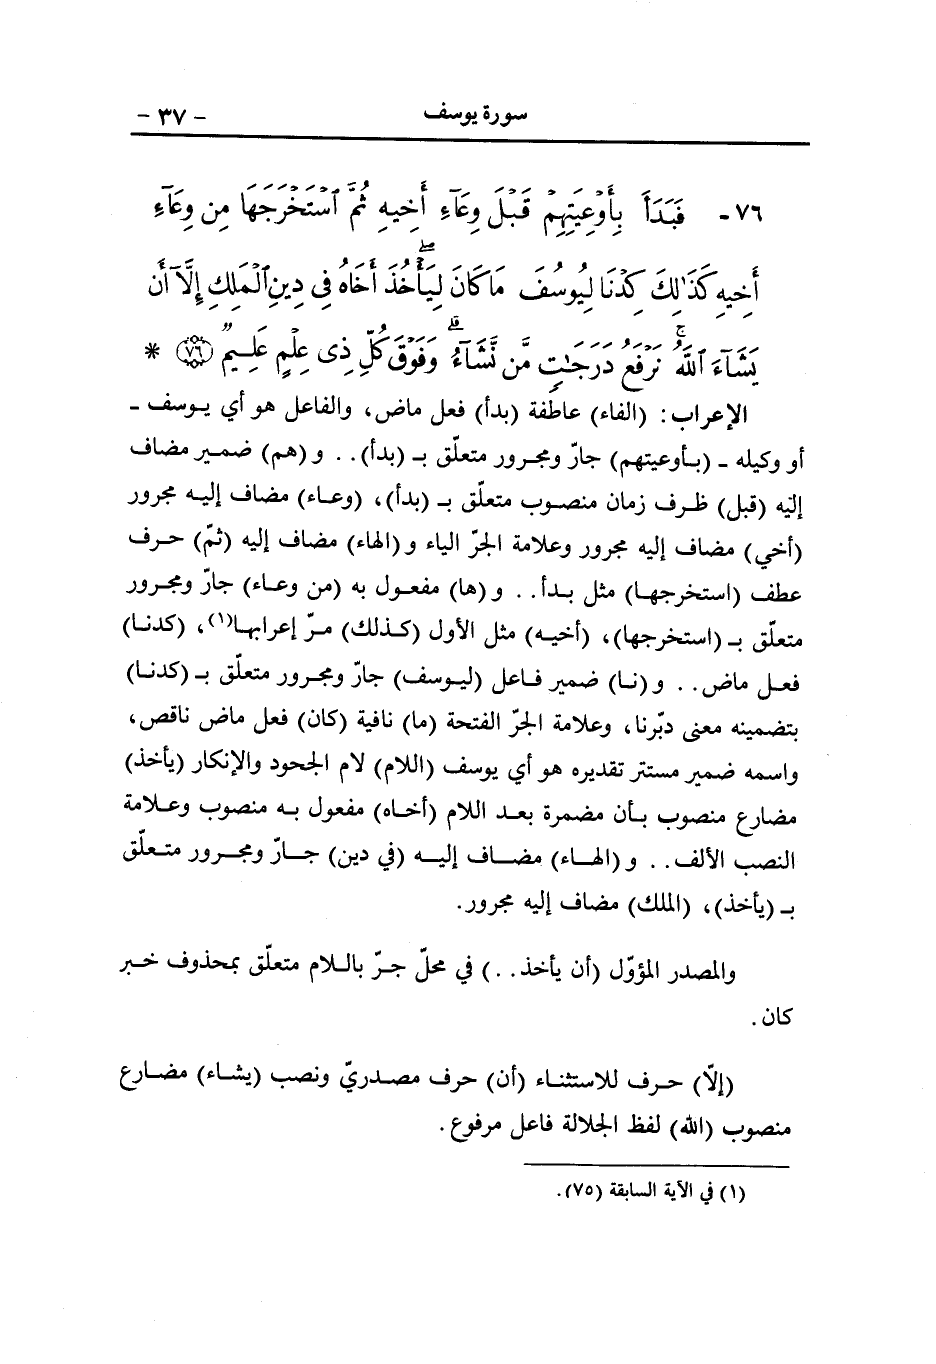 سورة يوسف - ٣٧ -
٧٦ - فَبَدَأَ بِأَوْعِيَتِهِمْ قَبْلَ وِعَآءِ أَخِيهِ ثُمَّ ٱسْتَخْرَجَهَا مِن وِعَآءِ
أَخِيهِ كَذَٰلِكَ كِدْنَا لِيُوسُفَ ۖ مَا كَانَ لِيَأْخُذَ أَخَاهُ فِى دِينِ ٱلْمَلِكِ إِلَّآ أَن
يَشَآءَ ٱللَّهُ ۚ نَرْفَعُ دَرَجَٰتٍ مَّن نَّشَآءُ ۗ وَفَوْقَ كُلِّ ذِى عِلْمٍ عَلِيمٌ ﴿٧٦﴾ *
الإعراب: (الفاء) عاطفة (بدأ) فعل ماض، والفاعل هو أي يوسف -
أو وكيله - (بأوعيتهم) جارّ ومجرور متعلّق بـ (بدأ).. و(هم) ضمير مضاف
إليه (قبل) ظرف زمان منصوب متعلّق بـ (بدأ)، (وعاء) مضاف إليه مجرور
(أخي) مضاف إليه مجرور وعلامة الجرّ الياء و(الهاء) مضاف إليه (ثمّ) حرف
عطف (استخرجها) مثل بدأ.. و(ها) مفعول به (من وعاء) جارّ ومجرور
متعلّق بـ (استخرجها)، (أخيه) مثل الأول (كذلك) مرّ إعرابها(١)، (كدنا)
فعل ماض.. و(نا) ضمير فاعل (ليوسف) جارّ ومجرور متعلّق بـ (كدنا)
بتضمينه معنى دبّرنا، وعلامة الجرّ الفتحة (ما) نافية (كان) فعل ماض ناقص،
واسمه ضمير مستتر تقديره هو أي يوسف (اللام) لام الجحود والإنكار (يأخذ)
مضارع منصوب بأن مضمرة بعد اللام (أخاه) مفعول به منصوب وعلامة
النصب الألف.. و(الهاء) مضاف إليه (في دين) جارّ ومجرور متعلّق
بـ (يأخذ)، (الملك) مضاف إليه مجرور.
والمصدر المؤوّل (أن يأخذ..) في محلّ جرّ باللام متعلّق بمحذوف خبر
كان.
(إلّا) حرف للاستثناء (أن) حرف مصدريّ ونصب (يشاء) مضارع
منصوب (الله) لفظ الجلالة فاعل مرفوع.
(١) في الآية السابقة (٧٥).